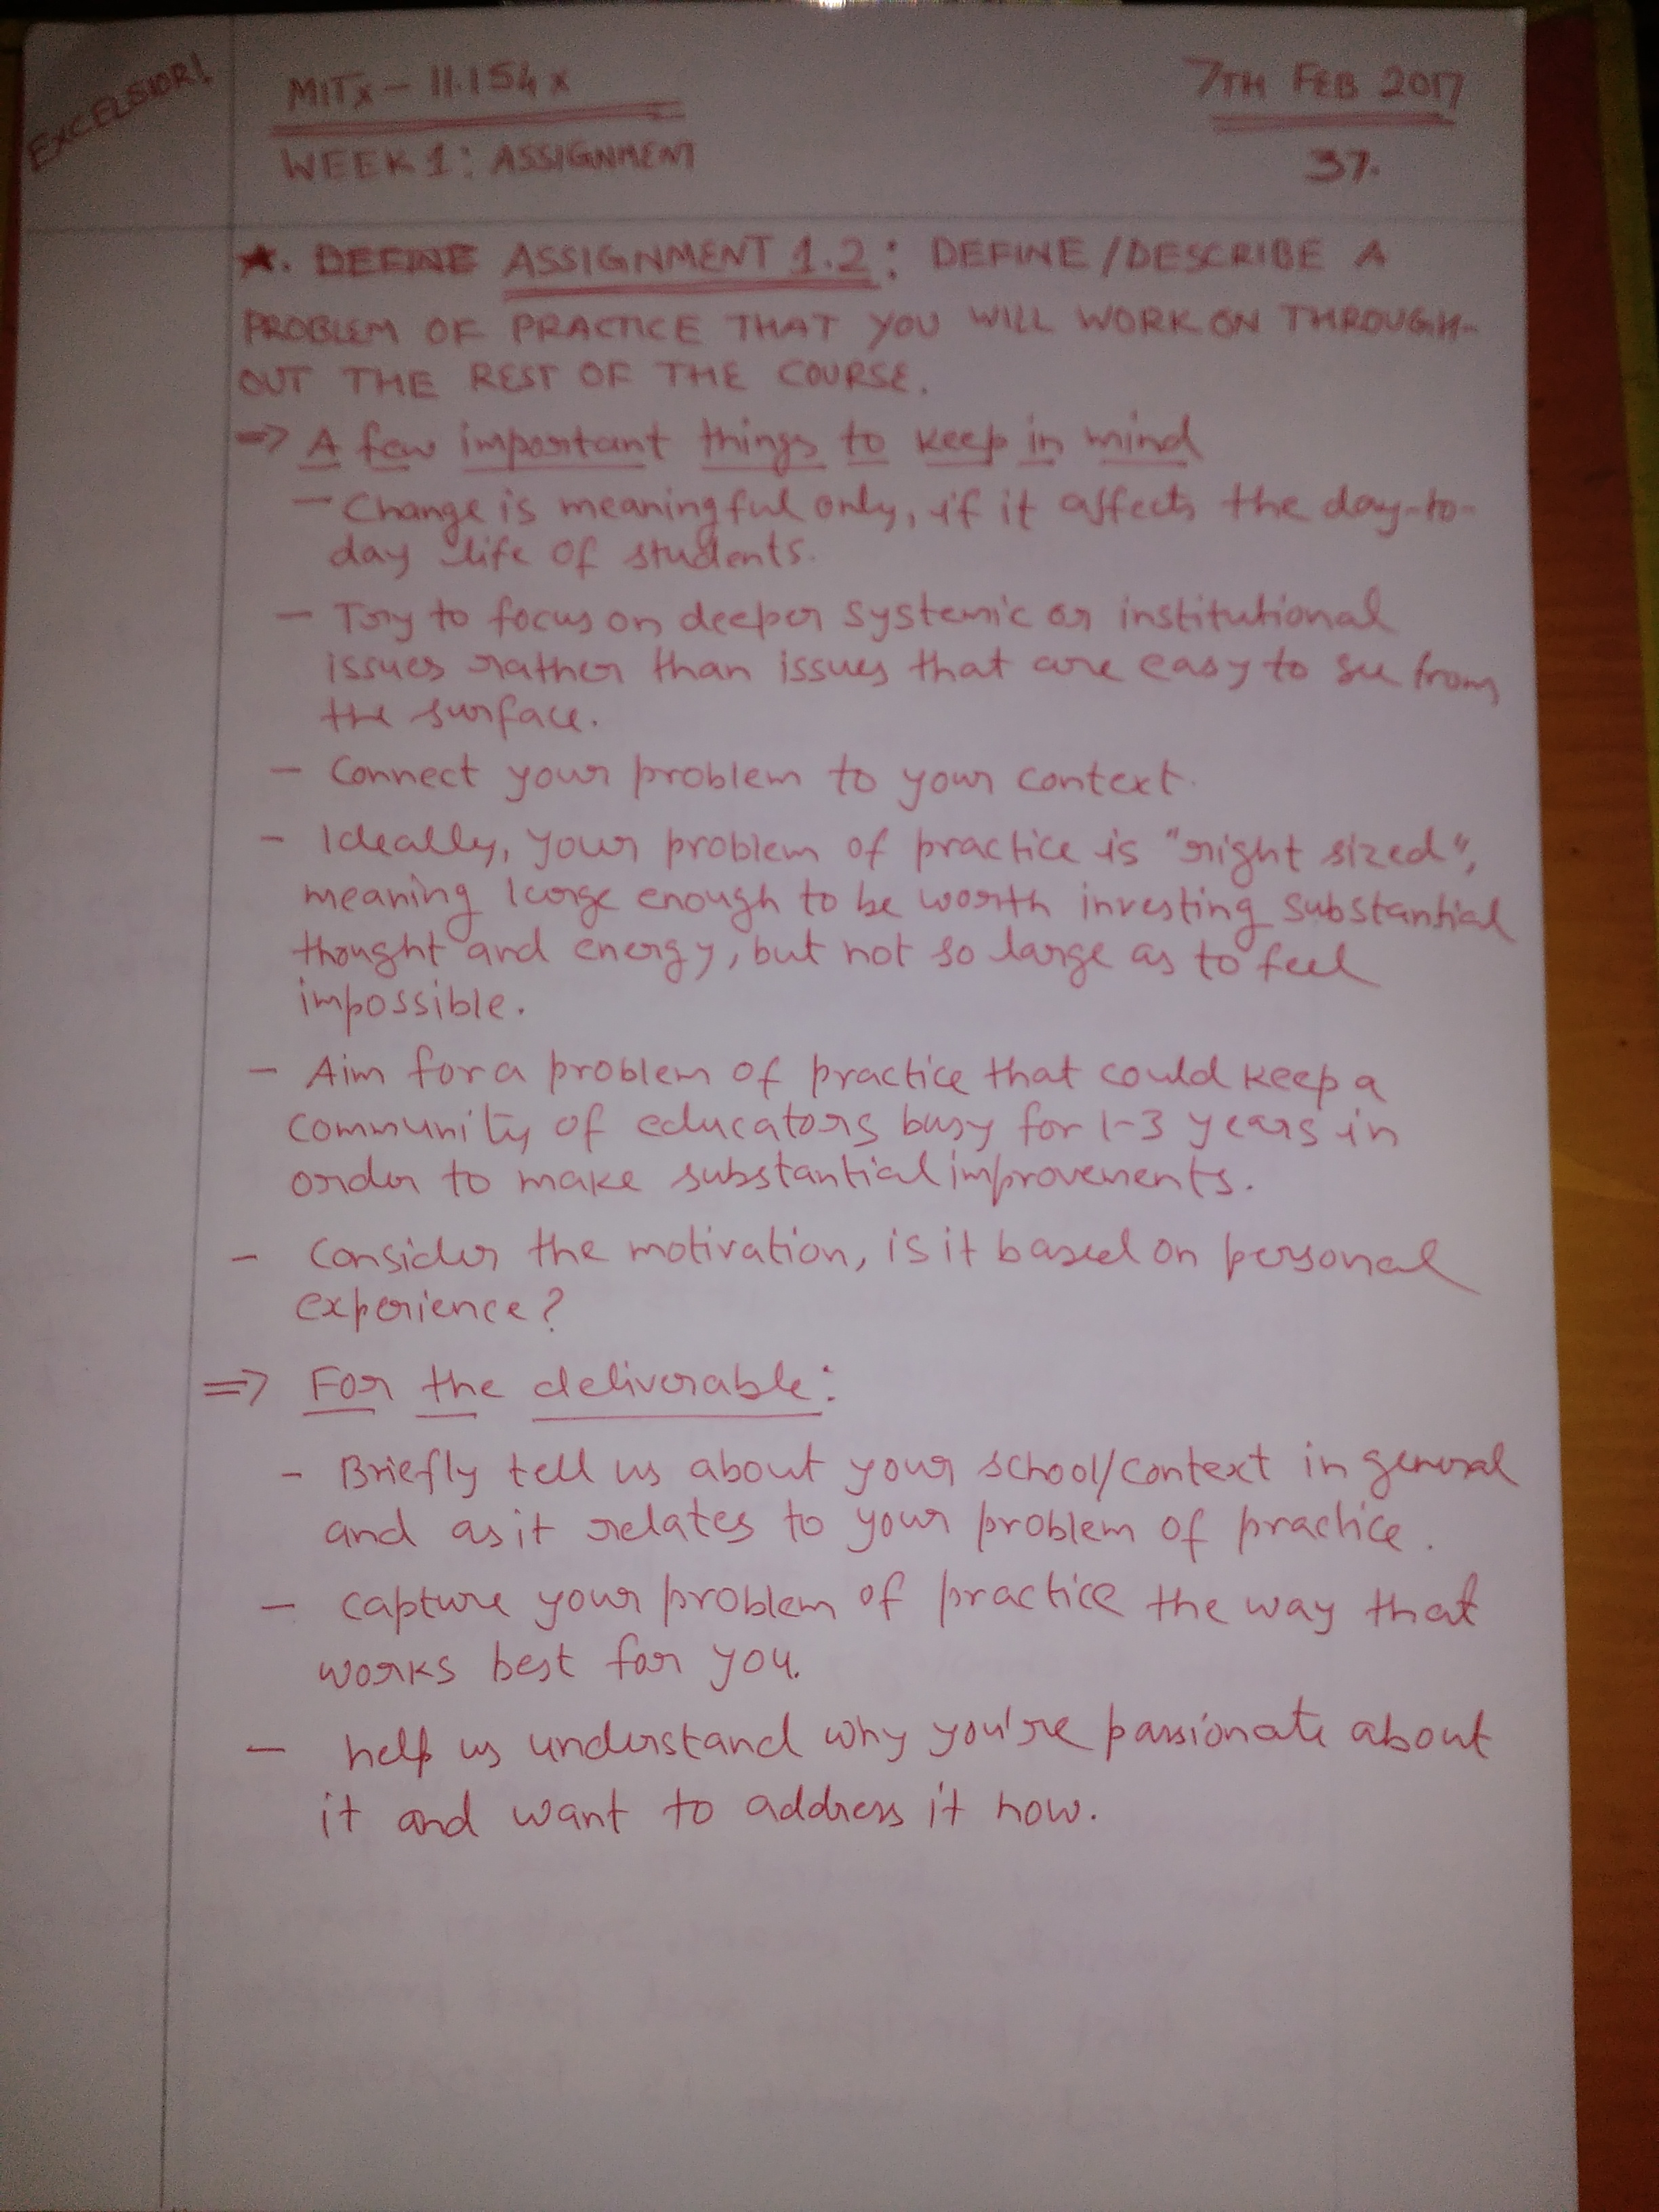 EXCELSIOR!
MITx - 11.154x
7TH FEB 2017
WEEK 1: ASSIGNMENT
37.
★. DEFINE ASSIGNMENT 1.2: DEFINE/DESCRIBE A
PROBLEM OF PRACTICE THAT YOU WILL WORK ON THROUGH-
OUT THE REST OF THE COURSE.
⇒ A few important things to keep in mind
- Change is meaningful only, if it affects the day-to-
day life of students.
- Try to focus on deeper systemic or institutional
issues rather than issues that are easy to see from
the surface.
- Connect your problem to your context.
- Ideally, your problem of practice is "right sized",
meaning large enough to be worth investing substantial
thought and energy, but not so large as to feel
impossible.
- Aim for a problem of practice that could keep a
community of educators busy for 1-3 years in
order to make substantial improvements.
- Consider the motivation, is it based on personal
experience?
⇒ For the deliverable:
- Briefly tell us about your school/context in general
and as it relates to your problem of practice.
- capture your problem of practice the way that
works best for you.
- help us understand why you're passionate about
it and want to address it now.